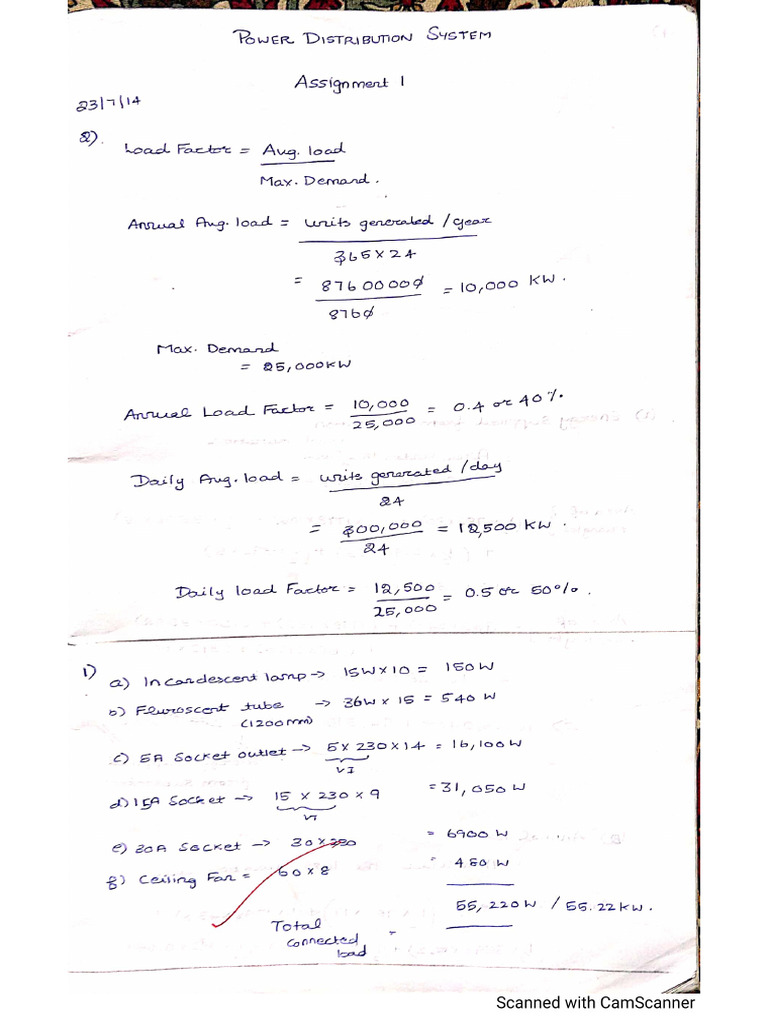 POWER DISTRIBUTION SYSTEM
Assignment 1
23/7/14
2). Load Factor = Avg. load
Max. Demand.
Annual Avg. load = units generated / year
365 x 24
= 87600000 = 10,000 KW.
8760
Max. Demand
= 25,000KW
Annual Load Factor = 10,000 = 0.4 or 40%.
25,000
Daily Avg. load = units generated / day
24
= 300,000 = 12,500 KW.
24
Daily load Factor = 12,500 = 0.5 or 50%.
25,000
1) a) Incandescent lamp → 15W x 10 = 150 W
b) Fluroscent tube → 36W x 15 = 540 W
(1200mm)
c) 5A Socket outlet → 5 x 230 x 14 = 16,100W
VI
d) 15A Socket → 15 x 230 x 9 = 31,050 W
VI
e) 30A Socket → 30 x 230 = 6900 W
f) Ceiling Fan = 60 x 8 = 480 W
55,220W / 55.22KW.
Total
connected =
load
Scanned with CamScanner